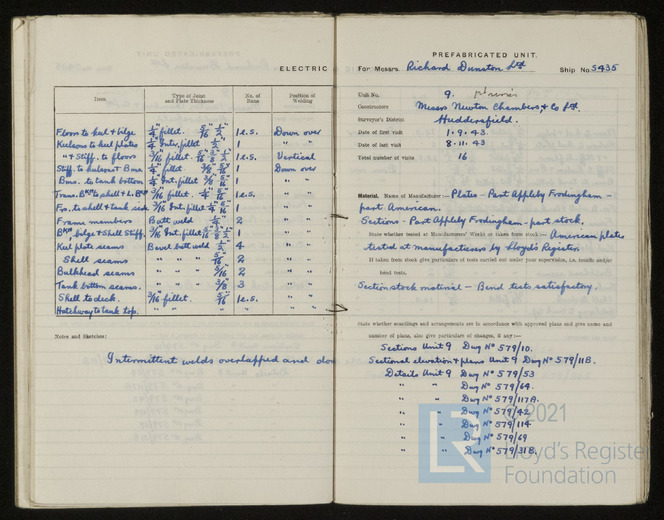 ELECTRIC
Item
Type of Joint and Plate Thickness
No. of Runs
Position of Welding
Floors to keel & bilge 1/4" fillet. 5/16" 1/2" 1 e.s. Down over
Keelsons to keel plates 1/4" Inter. fillet 1/2" 1 " "
" & Stiff. to floors 3/16" fillet. 1 e.s. Vertical
Stiff. to keelsons & Bms 1/4" fillet 3/16" 5/16" 1 Down over
Bms. to tank bottom 1/4" Int. fillet 3/8" 5/16" 1 " "
Trans. Bkhd to shell & L. Bkhd 3/16" fillet. 1/4" 5/16" 1 e.s. " "
Frs. to shell & tank side 3/16" Int. fillet 1/4" 5/16" 1 " "
Frame members Butt weld 1/4" 2 " "
Bkhd bilge & Shell Stiff. 3/16" Int. fillet 1 " "
Keel plate seams Bevel butt weld 1/2" 4 " "
Shell seams " " " 5/16" 2 " "
Bulkhead seams " " " 3/16" 2 " "
Tank bottom seams. " " " 3/8" 3 " "
Shell to deck. 3/16" fillet. 5/16" 1 e.s. " "
Hatchway to tank top. " " " " "
Notes and Sketches:
Intermittent welds overlapped and
PREFABRICATED UNIT.
For Messrs. Richard Dunston Ltd Ship No. S435
Unit No. 9.
Constructors Messrs Newton Chambers & Co Ltd.
Surveyor's District Huddersfield.
Date of first visit 1.9.43.
Date of last visit 8.11.43
Total number of visits 16
Material. Name of Manufacturer - Plates - Part Appleby Frodingham -
part American.
Sections - Part Appleby Frodingham - part stock.
State whether tested at Manufacturers' Works or taken from stock:- American plates
tested at manufacturers by Lloyd's Register
If taken from stock give particulars of tests carried out under your supervision, i.e. tensile and/or
bend tests.
Section stock material - Bend tests satisfactory.
State whether scantlings and arrangements are in accordance with approved plans and give name and
number of plans, also give particulars of changes, if any:-
Sections Unit 9 Dwg No 579/10.
Sectional elevation & plans Unit 9 Dwg No 579/11B.
Details Unit 9 Dwg No 579/53
" " Dwg No 579/64.
" " Dwg No 579/117A.
" " Dwg No 579/42
" " Dwg No 579/114
" " Dwg No 579/69
" " Dwg No 579/31B.
© 2021
Lloyd's Register
Foundation
LR